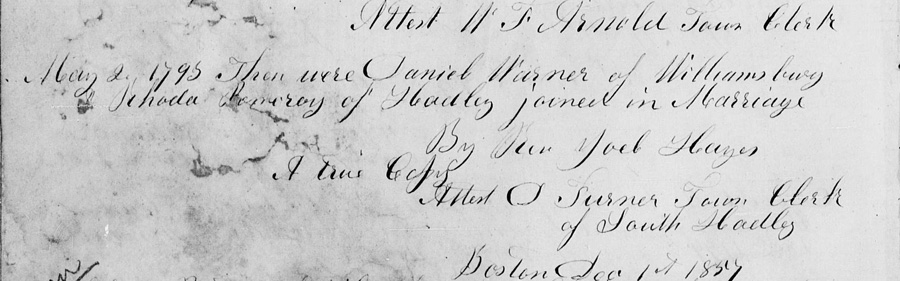 Attest W F Arnold Town Clerk
May 2, 1793 Then were Daniel Warner of Williamsburg
& Rhoda Pomeroy of Hadley joined in Marriage
By Rev Joel Hayes
A true Copy
Attest O Turner Town Clerk
of South Hadley
Boston Dec 1st 1857